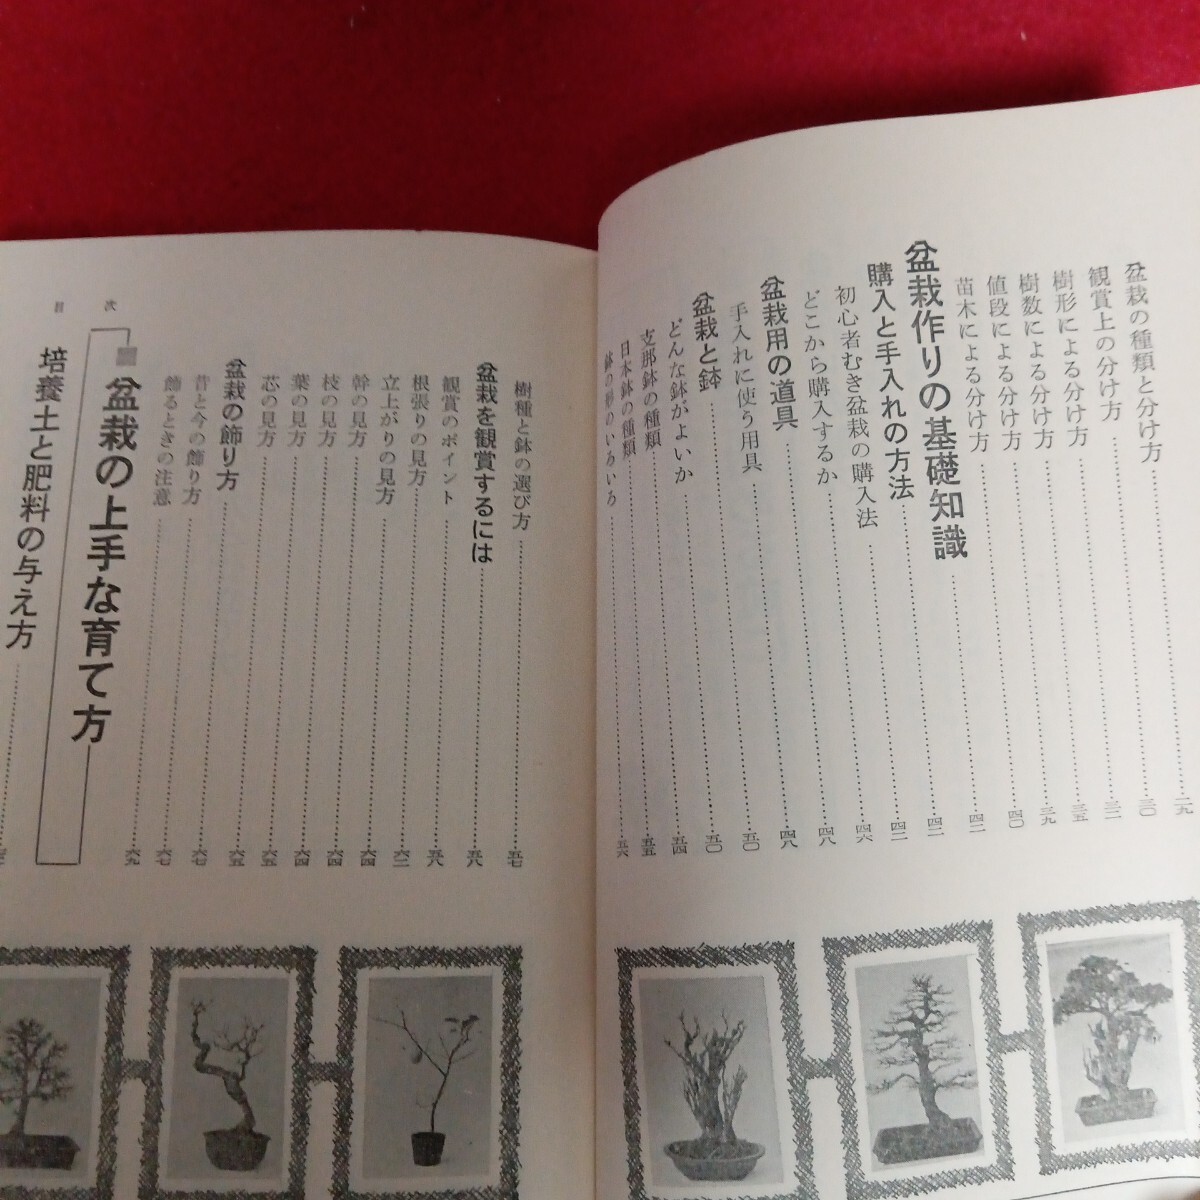 盆栽の種類と分け方……二九
観賞上の分け方……三〇
樹形による分け方……三二
樹数による分け方……三五
値段による分け方……三九
苗木による分け方……四〇
盆栽作りの基礎知識……四二
購入と手入れの方法……四二
初心者むき盆栽の購入法……四六
どこから購入するか……四八
盆栽用の道具……四八
手入れに使う用具……五〇
盆栽と鉢……五〇
どんな鉢がよいか……五四
支那鉢の種類……五五
日本鉢の種類……五六
鉢の形のいろいろ
樹種と鉢の選び方……五七
盆栽を観賞するには……五八
観賞のポイント……五八
根張りの見方……六二
立上がりの見方……六四
幹の見方……六四
枝の見方……六四
葉の見方……六五
芯の見方……六五
盆栽の飾り方……六七
昔と今の飾り方……六七
飾るときの注意……六九
目次
■盆栽の上手な育て方
培養土と肥料の与え方……